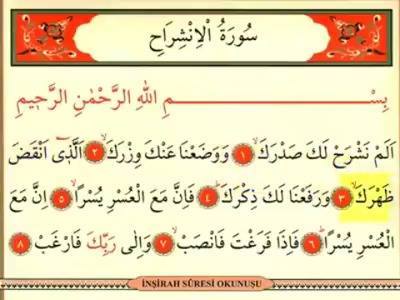 سُورَةُ الْاِنْشِرَاحِ
بِسْــــــــــــــــــمِ اللهِ الرَّحْمٰنِ الرَّحٖيمِ
اَلَمْ نَشْرَحْ لَكَ صَدْرَكَۙ ١ وَوَضَعْنَا عَنْكَ وِزْرَكَۙ ٢ اَلَّذٖٓى اَنْقَضَ
ظَهْرَكَۙ ٣ وَرَفَعْنَا لَكَ ذِكْرَكَؕ ٤ فَاِنَّ مَعَ الْعُسْرِ يُسْرًاۙ ٥ اِنَّ مَعَ
الْعُسْرِ يُسْرًاؕ ٦ فَاِذَا فَرَغْتَ فَانْصَبْۙ ٧ وَاِلٰى رَبِّكَ فَارْغَبْ ٨
İNŞİRAH SÛRESİ OKUNUŞU